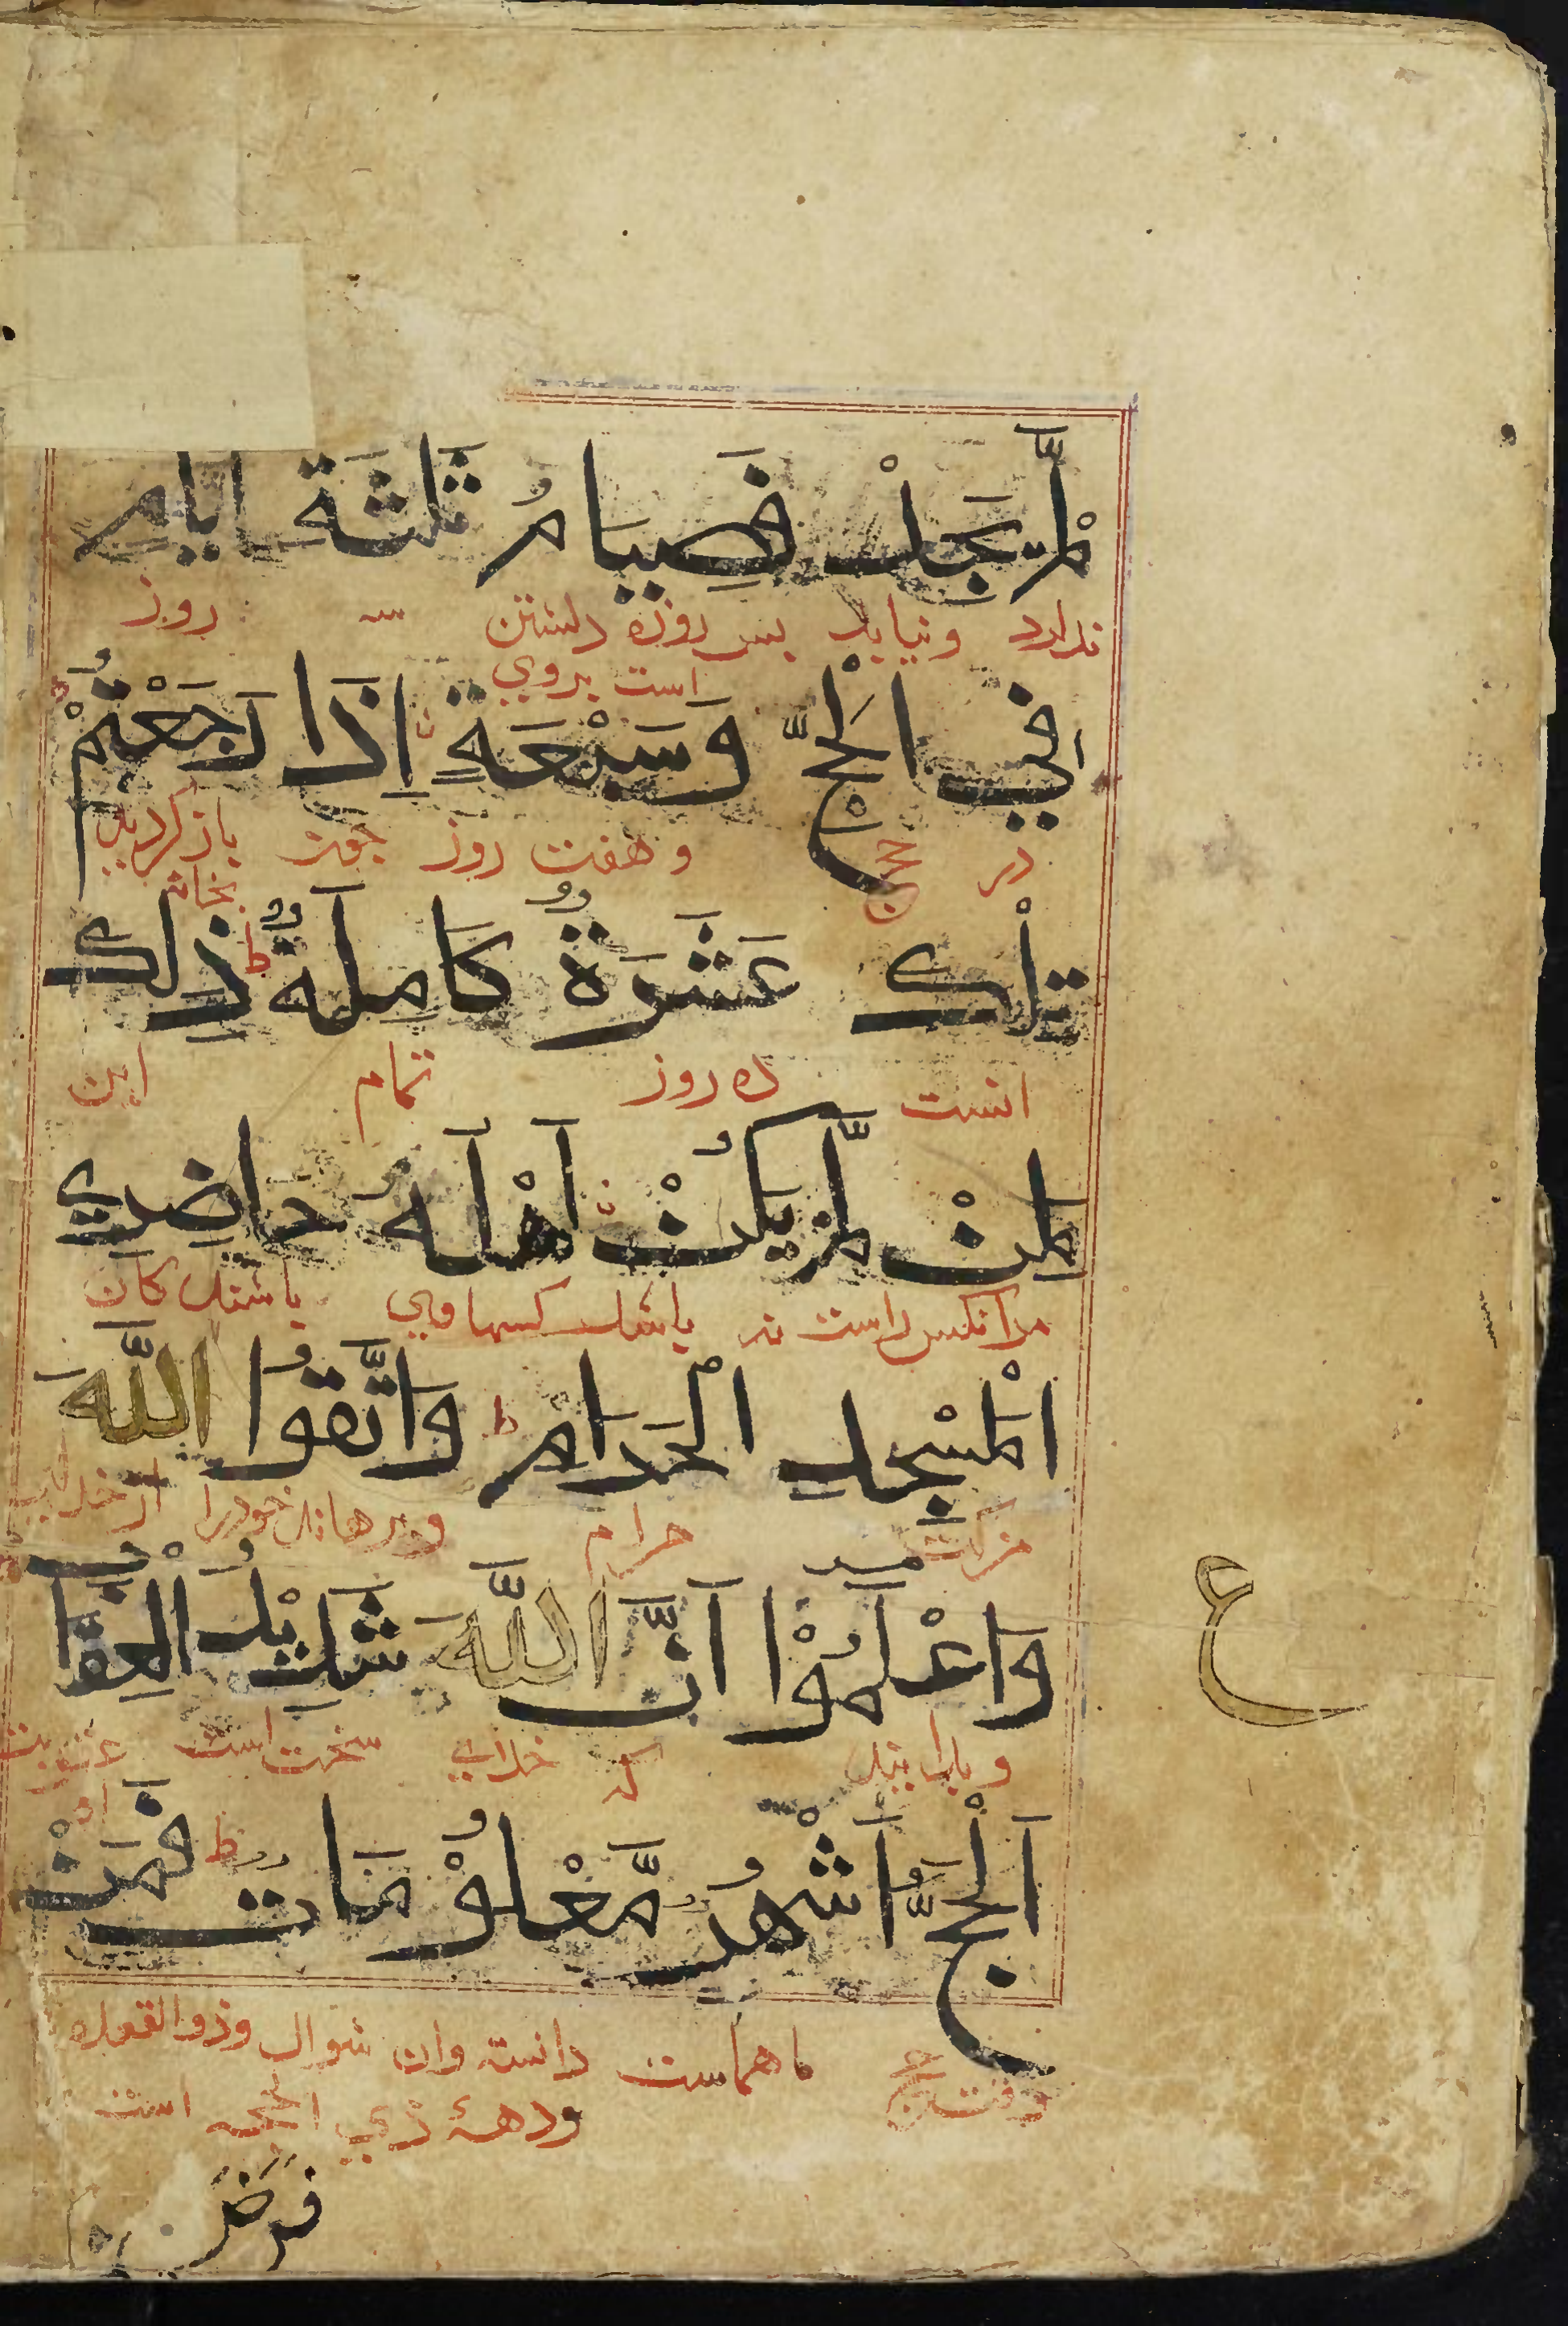 لَّمْ يَجِدْ فَصِيَامُ ثَلٰثَةِ اَيَّامٍ
ندارد ونیابد پس روزه داشتن سه روز
است بروی
فِي الْحَجِّ وَسَبْعَةٍ اِذَا رَجَعْتُمْ
در حج وهفت روز چون بازگردید
بخانه
تِلْكَ عَشَرَةٌ كَامِلَةٌ ط ذٰلِكَ
انست ده روز تمام این
لِمَنْ لَّمْ يَكُنْ اَهْلُهُ حَاضِرِي
مرانکس راست نه باشد کسها وی باشند کان
الْمَسْجِدِ الْحَرَامِ ط وَاتَّقُوا اللّٰهَ
مزکت حرام وبرهانید خودرا از خدای
وَاعْلَمُوْا اَنَّ اللّٰهَ شَدِيْدُ الْعِقَابِ
وبدانید که خدای سخت است عقوبت
او
اَلْحَجُّ اَشْهُرٌ مَّعْلُوْمَاتٌ ط فَمَنْ
وقت حج ماهماست دانسته وان شوال وذوالقعده
ودههٔ ذی الحجه است
فرض
ع